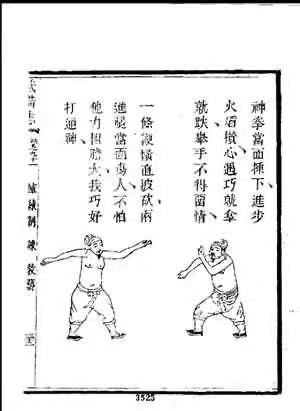 神拳當面插下進步
火焰攢心遇巧就拿
就跌舉手不得留情
一條鞭橫直披砍兩
進腿當面傷人不怕
他力粗膽大我巧好
打通神
武備志 卷九十一
陣練制 練 教藝
3525